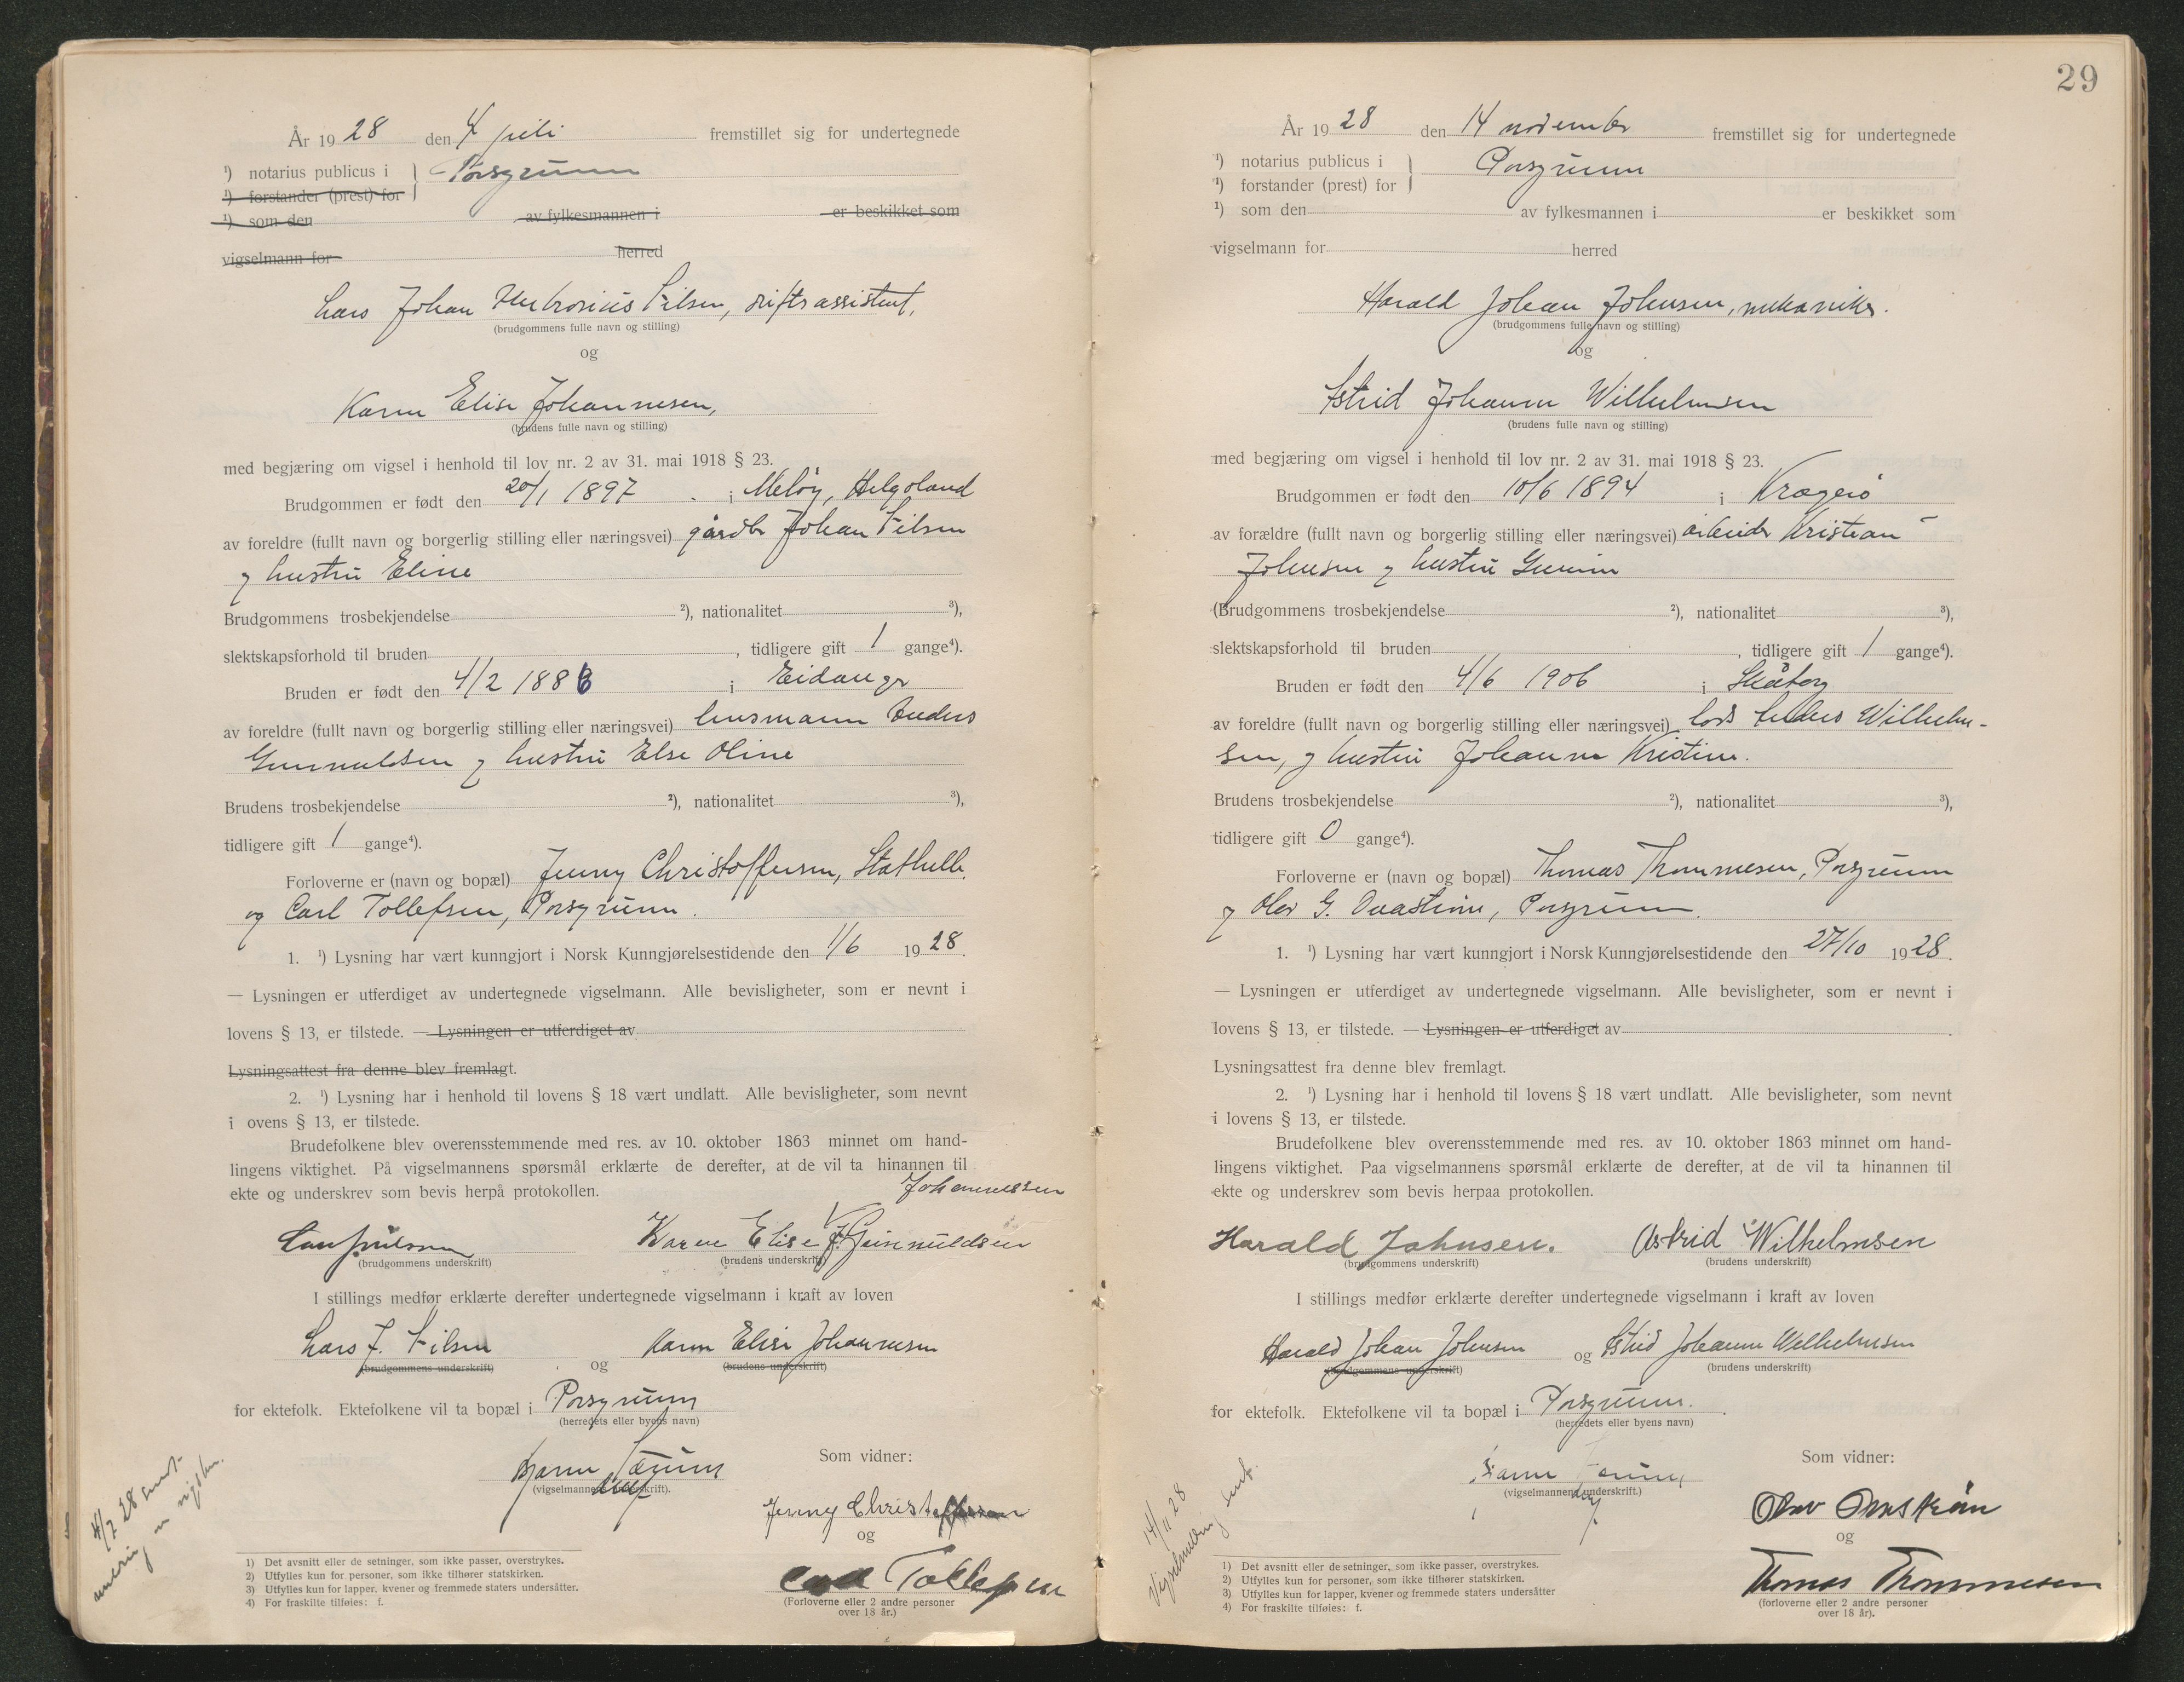 År 19 28 den 4 juli fremstillet sig for undertegnede
¹) notarius publicus i } Porsgrunn
¹) forstander (prest) for
¹) som den av fylkesmannen i er beskikket som
vigselmann for herred
Lars Johan Ambrosius Nilsen, driftsassistent,
(brudgommens fulle navn og stilling)
og
Karen Elise Johannesen,
(brudens fulle navn og stilling)
med begjæring om vigsel i henhold til lov nr. 2 av 31. mai 1918 § 23.
Brudgommen er født den 20/1 1897 i Meløy, Helgoland
av foreldre (fullt navn og borgerlig stilling eller næringsvei) gårdbr Johan Nilsen
og hustru Eline
Brudgommens trosbekjendelse ²), nationalitet ³),
slektskapsforhold til bruden , tidligere gift 1 gange⁴).
Bruden er født den 4/2 1886 i Eidanger
av foreldre (fullt navn og borgerlig stilling eller næringsvei) husmann Anders
Gunnuldsen og hustru Else Oline
Brudens trosbekjendelse ²), nationalitet ³),
tidligere gift 1 gange⁴).
Forloverne er (navn og bopæl) Jenny Christoffersen, Stathelle
og Carl Tollefsen, Porsgrunn.
1. ¹) Lysning har vært kunngjort i Norsk Kunngjørelsestidende den 1/6 1928.
— Lysningen er utferdiget av undertegnede vigselmann. Alle bevisligheter, som er nevnt i
lovens § 13, er tilstede. — Lysningen er utferdiget av
Lysningsattest fra denne blev fremlagt.
2. ¹) Lysning har i henhold til lovens § 18 vært undlatt. Alle bevisligheter, som nevnt
i ovens § 13, er tilstede.
Brudefolkene blev overensstemmende med res. av 10. oktober 1863 minnet om hand-
lingens viktighet. På vigselmannens spørsmål erklærte de derefter, at de vil ta hinannen til
ekte og underskrev som bevis herpå protokollen.
Johannessen
Karen Elise Gunnuldsen
(brudgommens underskrift) (brudens underskrift)
I stillings medfør erklærte derefter undertegnede vigselmann i kraft av loven
Lars J. Nilsen og Karen Elise Johannesen
(brudgommens underskrift) (brudens underskrift)
for ektefolk. Ektefolkene vil ta bopæl i Porsgrunn
(herredets eller byens navn)
Som vidner:
(vigselmannens underskrift).
Jenny Christoffersen
og
Carl Tollefsen
(Forloverne eller 2 andre personer
over 18 år.)
4/7 28 sendt
1) Det avsnitt eller de setninger, som ikke passer, overstrykes.
2) Utfylles kun for personer, som ikke tilhører statskirken.
3) Utfylles kun for lapper, kvener og fremmede staters undersåtter.
4) For fraskilte tilføies: f.
29
År 19 28 den 14 november fremstillet sig for undertegnede
¹) notarius publicus i } Porsgrunn
¹) forstander (prest) for
¹) som den av fylkesmannen i er beskikket som
vigselmann for herred
Harald Johan Johnsen, mekaniker.
(brudgommens fulle navn og stilling)
og
Astrid Johanne Wilhelmsen
(brudens fulle navn og stilling)
med begjæring om vigsel i henhold til lov nr. 2 av 31. mai 1918 § 23.
Brudgommen er født den 10/6 1894 i Kragerø
av forældre (fullt navn og borgerlig stilling eller næringsvei) arbeider Kristian
Johnsen og hustru Gunine
(Brudgommens trosbekjendelse ²), nationalitet ³),
slektskapsforhold til bruden , tidligere gift 1 gange⁴).
Bruden er født den 4/6 1906 i Skåtøy
av foreldre (fullt navn og borgerlig stilling eller næringsvei) lods Anders Wilhelm-
sen, og hustru Johanne Kristine.
Brudens trosbekjendelse ²), nationalitet ³),
tidligere gift 0 gange⁴).
Forloverne er (navn og bopæl) Thomas Thommesen, Porsgrunn
og Olav G. Porsgrunn.
1. ¹) Lysning har vært kunngjort i Norsk Kunngjørelsestidende den 27/10 1928.
— Lysningen er utferdiget av undertegnede vigselmann. Alle bevisligheter, som er nevnt i
lovens § 13, er tilstede. — Lysningen er utferdiget av
Lysningsattest fra denne blev fremlagt.
2. ¹) Lysning har i henhold til lovens § 18 vært undlatt. Alle bevisligheter, som nevnt
i lovens § 13, er tilstede.
Brudefolkene blev overensstemmende med res. av 10. oktober 1863 minnet om hand-
lingens viktighet. Paa vigselmannens spørsmål erklærte de derefter, at de vil ta hinannen til
ekte og underskrev som bevis herpaa protokollen.
Harald Johnsen. Astrid Wilhelmsen
(brudgommens underskrift) (brudens underskrift)
I stillings medfør erklærte derefter undertegnede vigselmann i kraft av loven
Harald Johan Johnsen og Astrid Johanne Wilhelmsen
(brudgommens underskrift) (brudens underskrift)
for ektefolk. Ektefolkene vil ta bopæl i Porsgrunn.
(herredets eller byens navn)
Som vidner:
(vigselmannens underskrift.)
Olav
og
Thomas Thommesen
(forloverne eller 2 andre personer
over 18 år).
14/11 28
Vigselmelding sendt.
1) Det avsnitt eller de setninger, som ikke passer, overstrykes.
2) Utfylles kun for personer, som ikke tilhører statskirken.
3) Utfylles kun for lapper, kvener og fremmede staters undersåtter
4) For fraskilte tilføies: f.